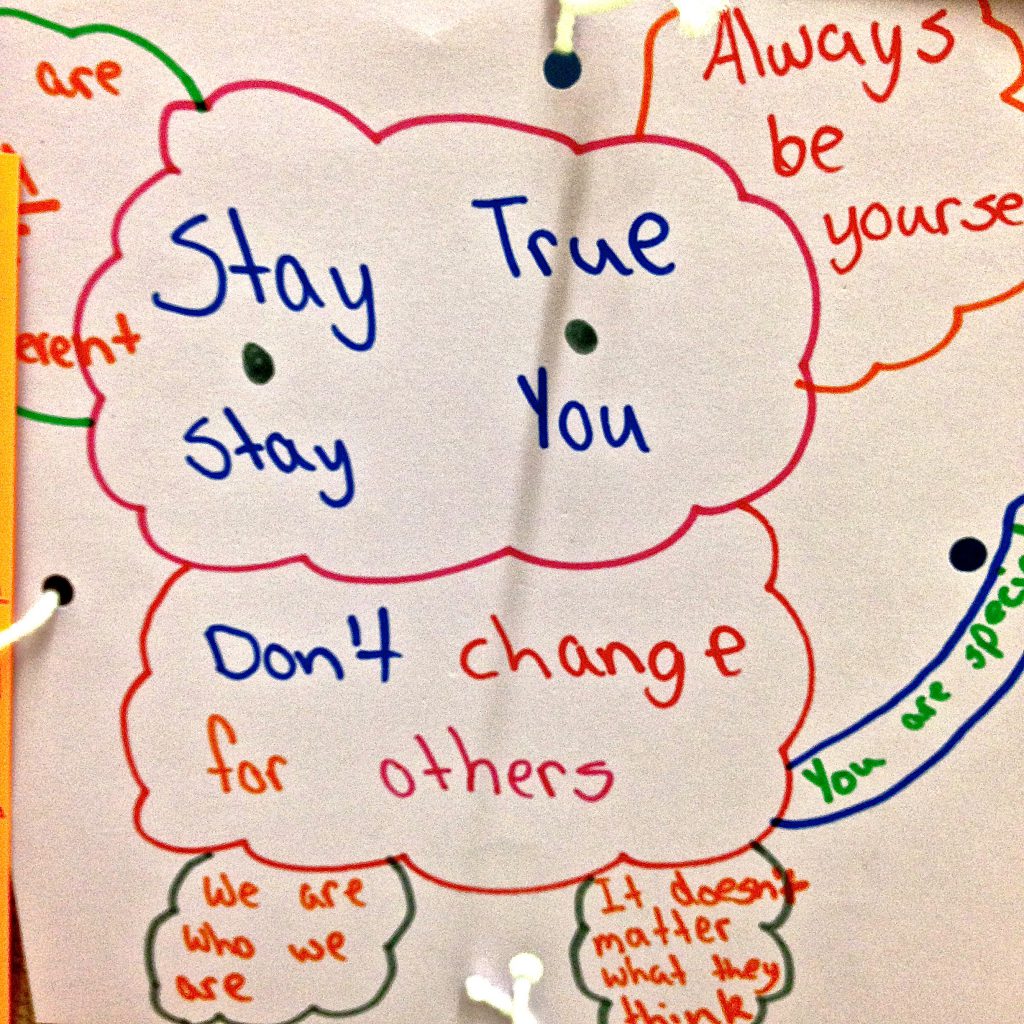 are
erent
Always
be
yourse
Stay True
Stay You
Don't change
for others
You are speci
We are
who we
are
It doesn't
matter
what they
think